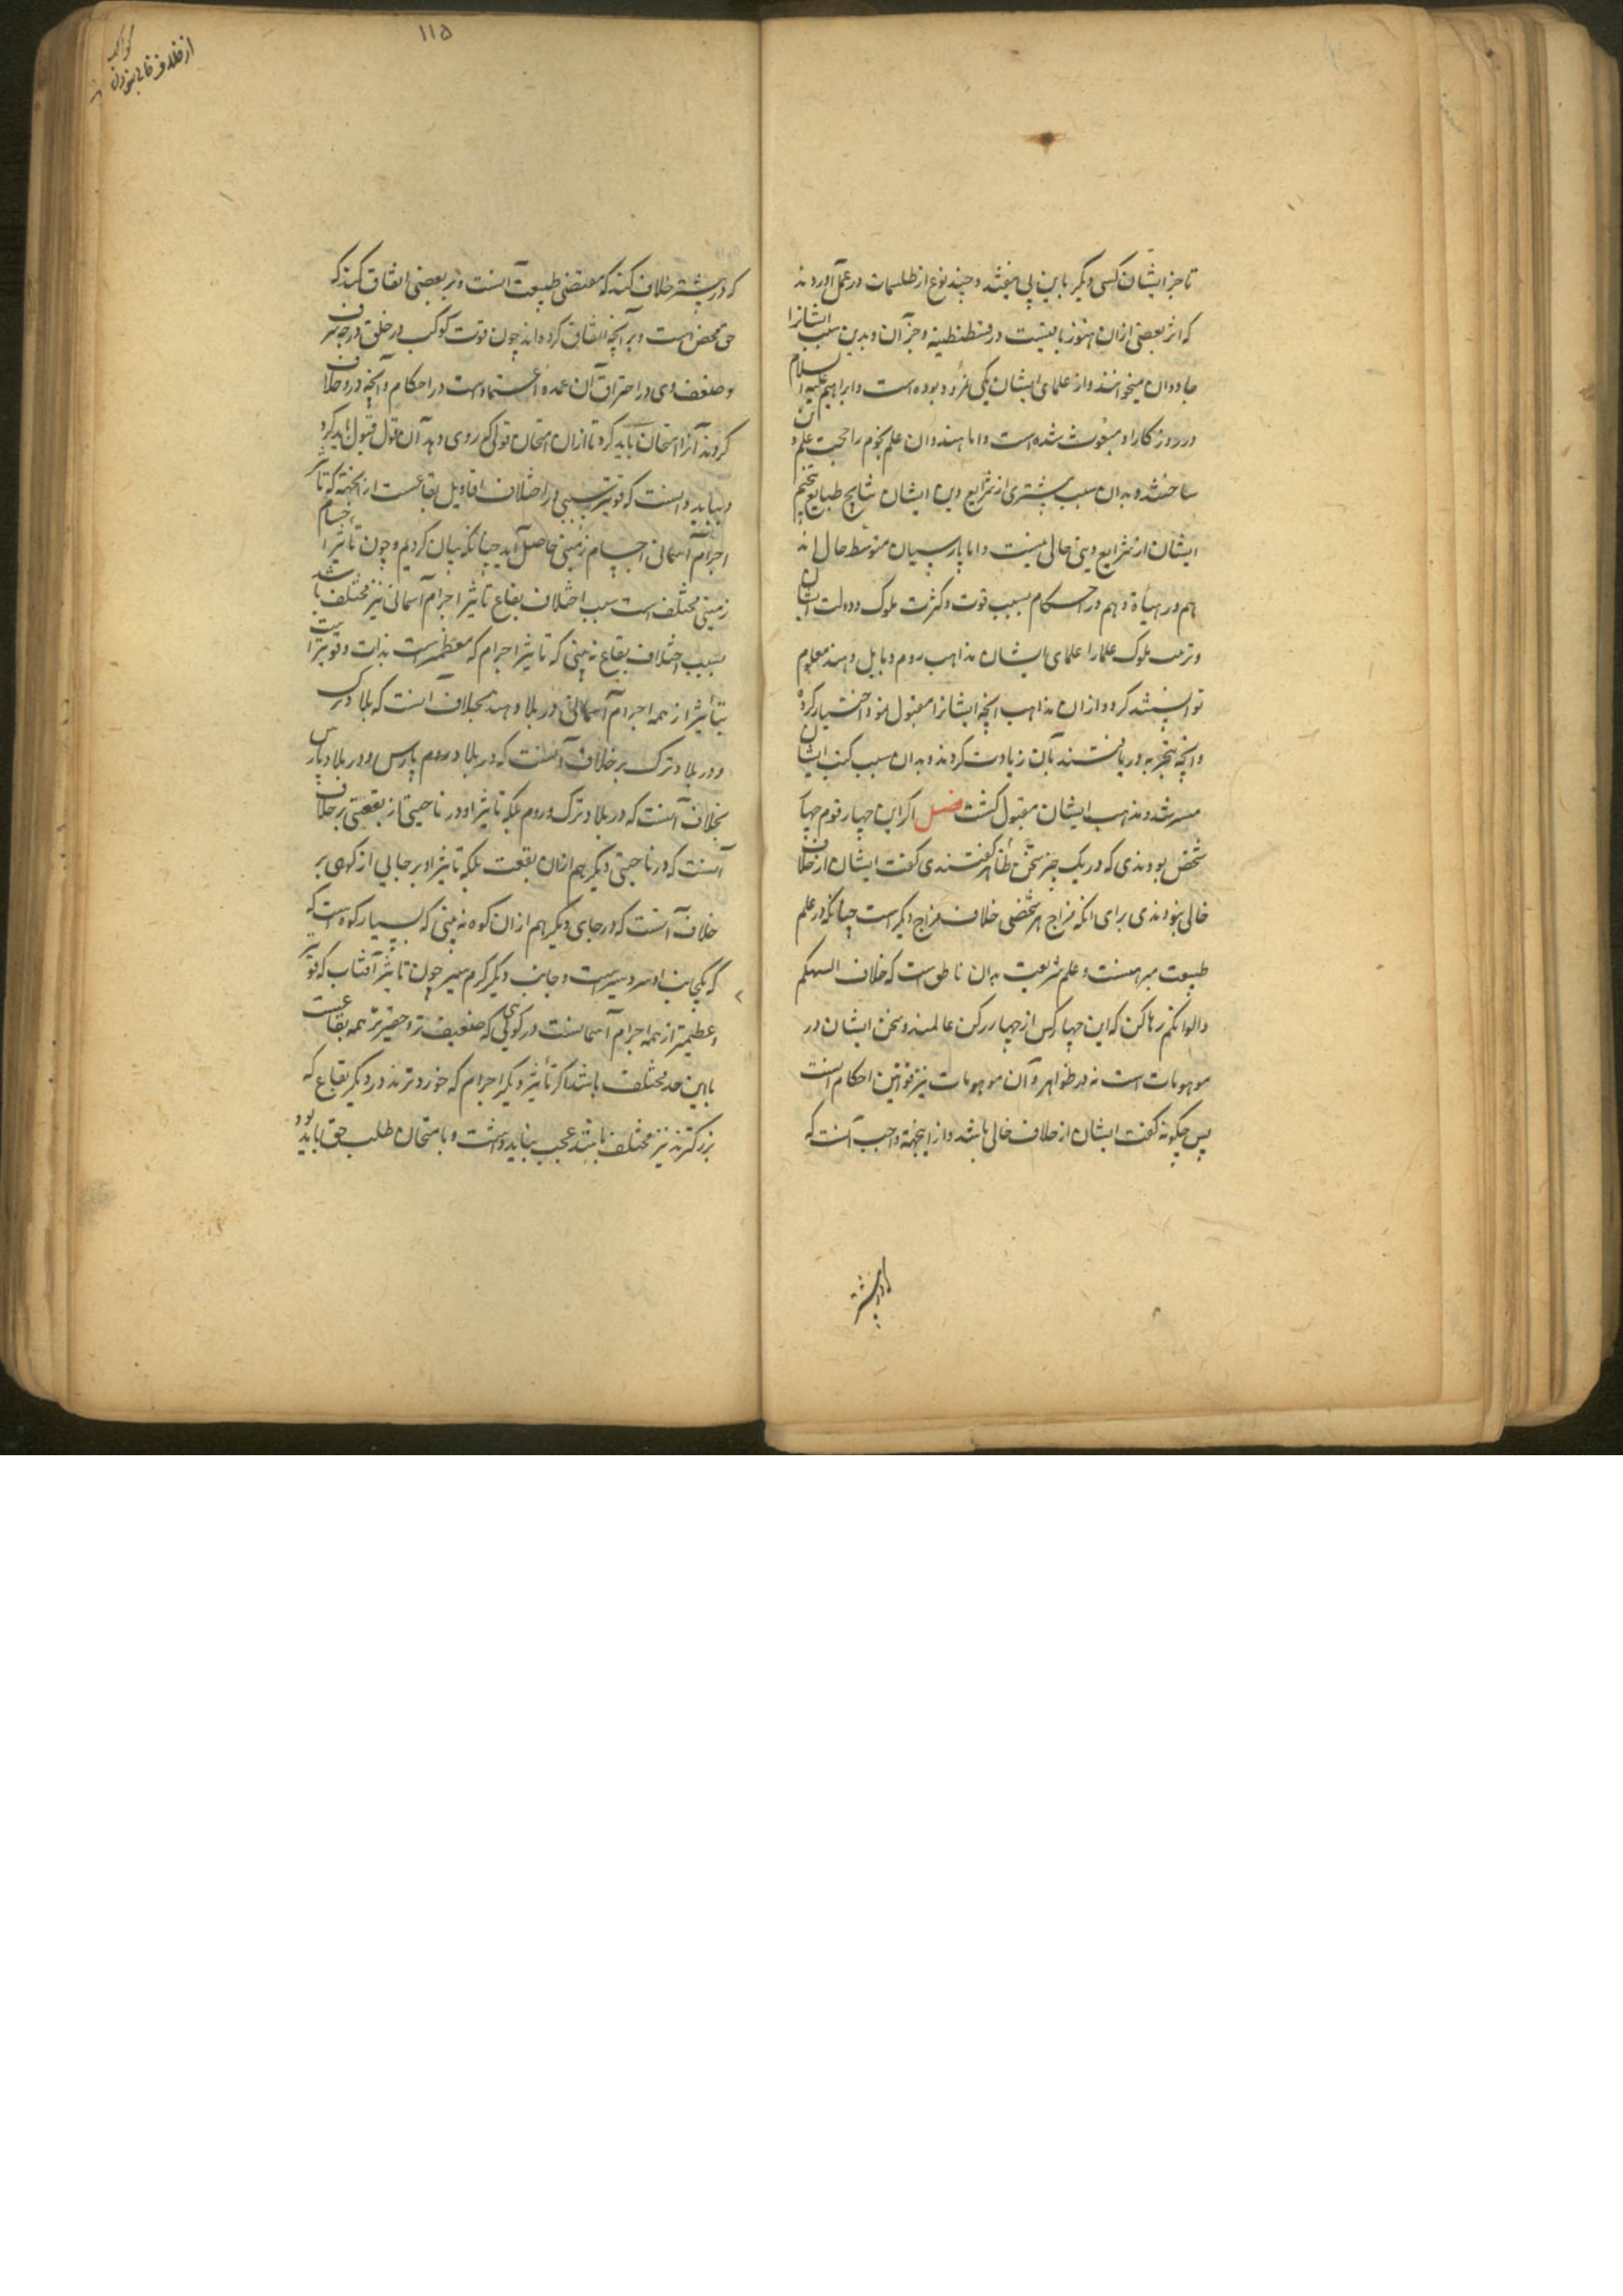 تا جز ایشان کسی دیگر باین پی نیفتد و چند نوع از طلسمات در عمل آوردند
که اثر بعضی ازان هنوز باقیست در قسطنطنیه و جز آن و بدین سبب ایشانرا
جادوان میخوانند و از علمای ایشان یکی نمرود بوده است و ابراهیم علیه السلام
در روزکار او مبعوث شده است و اما هندوان علم نجوم را حجت علم دین
ساختند و بدان سبب بیشتری از شرایع دین ایشان نتایج طبایع
ایشان از شرایع دینی خالی نیست و اما پارسیان متوسط حال اند
هم در هیاة و هم در احکام بسبب قوت و کثرت ملوک و دولت ایشان
و تربیت ملوک علما را علمای ایشان مذاهب روم و بابل و هند معلوم
توانستند کرد و ازان مذاهب آنچه ایشانرا مقبول بود اختیار کرده
و آنچه بتجربه دریافتند بآن زیادت کردند و بدان سبب کتب ایشان
میسر شد و مذهب ایشان مقبول کشت فصل اکر این چهار قوم چهار
شخص بودندی که در یک چیز سخن ظاهر کفتندی کفت ایشان از خلاف
خالی نبودندی برای آنکه مزاج هر شخصی خلاف مزاج دیکر است چنانکه در علم
طبیعت مبرهنست و علم شریعت بدان ناطق است که خلاف السنتکم
والوانکم رها کن که این چهار کس از چهار رکن عالمند و سخن ایشان در
موهومات است نه در ظواهر و آن موهومات نیز قوانین احکام است
پس چکونه کفت ایشان از خلاف خالی باشد و از اینجهة واجب آنست که
در بیشتر
۱۱۵
که در بیشتر خلاف کنند که مقتضی طبیعت آنست و بر بعضی اتفاق کنند که
حق محض است و بر آنچه اتفاق کرده اند چون قوت کوکب در خلق درجه شرف
و ضعف وی در احتراق آن عمدهٔ اعتماد است در احکام و آنچه در و خلاف
کردند آنرا امتحان باید کرد تا ازان امتحان قولی که روی دهد آن قول قبول باید کرد
و بباید دانست که قویتر سببی در اختلاف اقاویل بقاعست از انجهة که تأثیر
اجرام آسمانی اجسام زمینی حاصل آید چنانکه بیان کردیم و چون تأثیر اجسام
زمینی مختلف است سبب اختلاف بقاع تأثیر اجرام آسمانی نیز مختلف باشد
بسبب اختلاف بقاع نه بینی که تأثیر اجرام که معظمتر است بذات و قویتر است
بتأثیر از همه اجرام آسمانی در بلاد هند بخلاف آنست که بلاد ترک
و در بلاد ترک بر خلاف آنست که در بلاد روم پارس و در بلاد پارس
بخلاف آنست که در بلاد ترک و روم بلکه تأثیر او در ناحیتی از بقعتی بر خلاف
آنست که در ناحیتی دیگر هم ازان بقعت بلکه تأثیر او بر جایی از کوهی بر
خلاف آنست که در جای دیگر هم ازان کوه نه بینی که بسیار کوه است که
که یکجانب او سردسیر است و جانب دیگر کرم سیر چون تأثیر آفتاب که قویتر
و عظیمتر از همه اجرام آسمانست در کوهی که ضعیف تر و حقیرتر همه بقاعست
باین حد مختلف باشد اکر تأثیر دیگر اجرام که خوردترند در دیگر بقاع که
بزرکترند نیز مختلف باشد عجب نباید داشت و بامتحان طلب حق باید بود